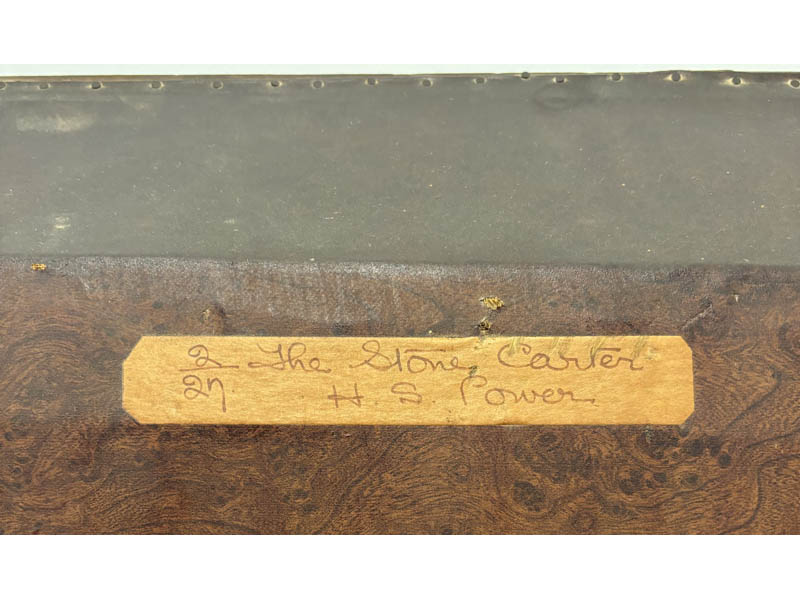 2/27 The Stone Carter
H. S. Power.